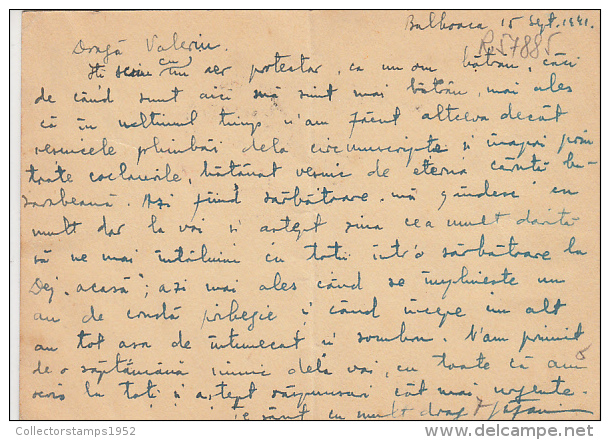 Balboaca 15 Sept. 1941.
R57885
Dragă Valeriu.
Îți scriu cu un aer protestar, ca un om bătrân, căci
de când sunt aici mă simt mai bătrân, mai ales
că în ultimul timp n'am făcut altceva decât
vesnicele plimbări dela circumscripție și înapoi prin
toate coclaurile, bătănat vesnic de eterna căruță ba-
sarabeană. Azi fiind sărbătoare mă gândesc cu
mult dor la voi și aștept ziua cea mult dorită
să ne mai întâlnim cu toții într'o sărbătoare la
Dej "acasă"; azi mai ales când se împlineste un
an de crudă pribegie și când începe un alt
an tot asa de întunecat și sombru. N'am primit
de o săptămână nimic dela voi, cu toate că am
scris la toți și aștept răspunsuri cât mai urgente.
Te sărut cu mult drag Ștefan
Collectorstamps1952
delcampe.net